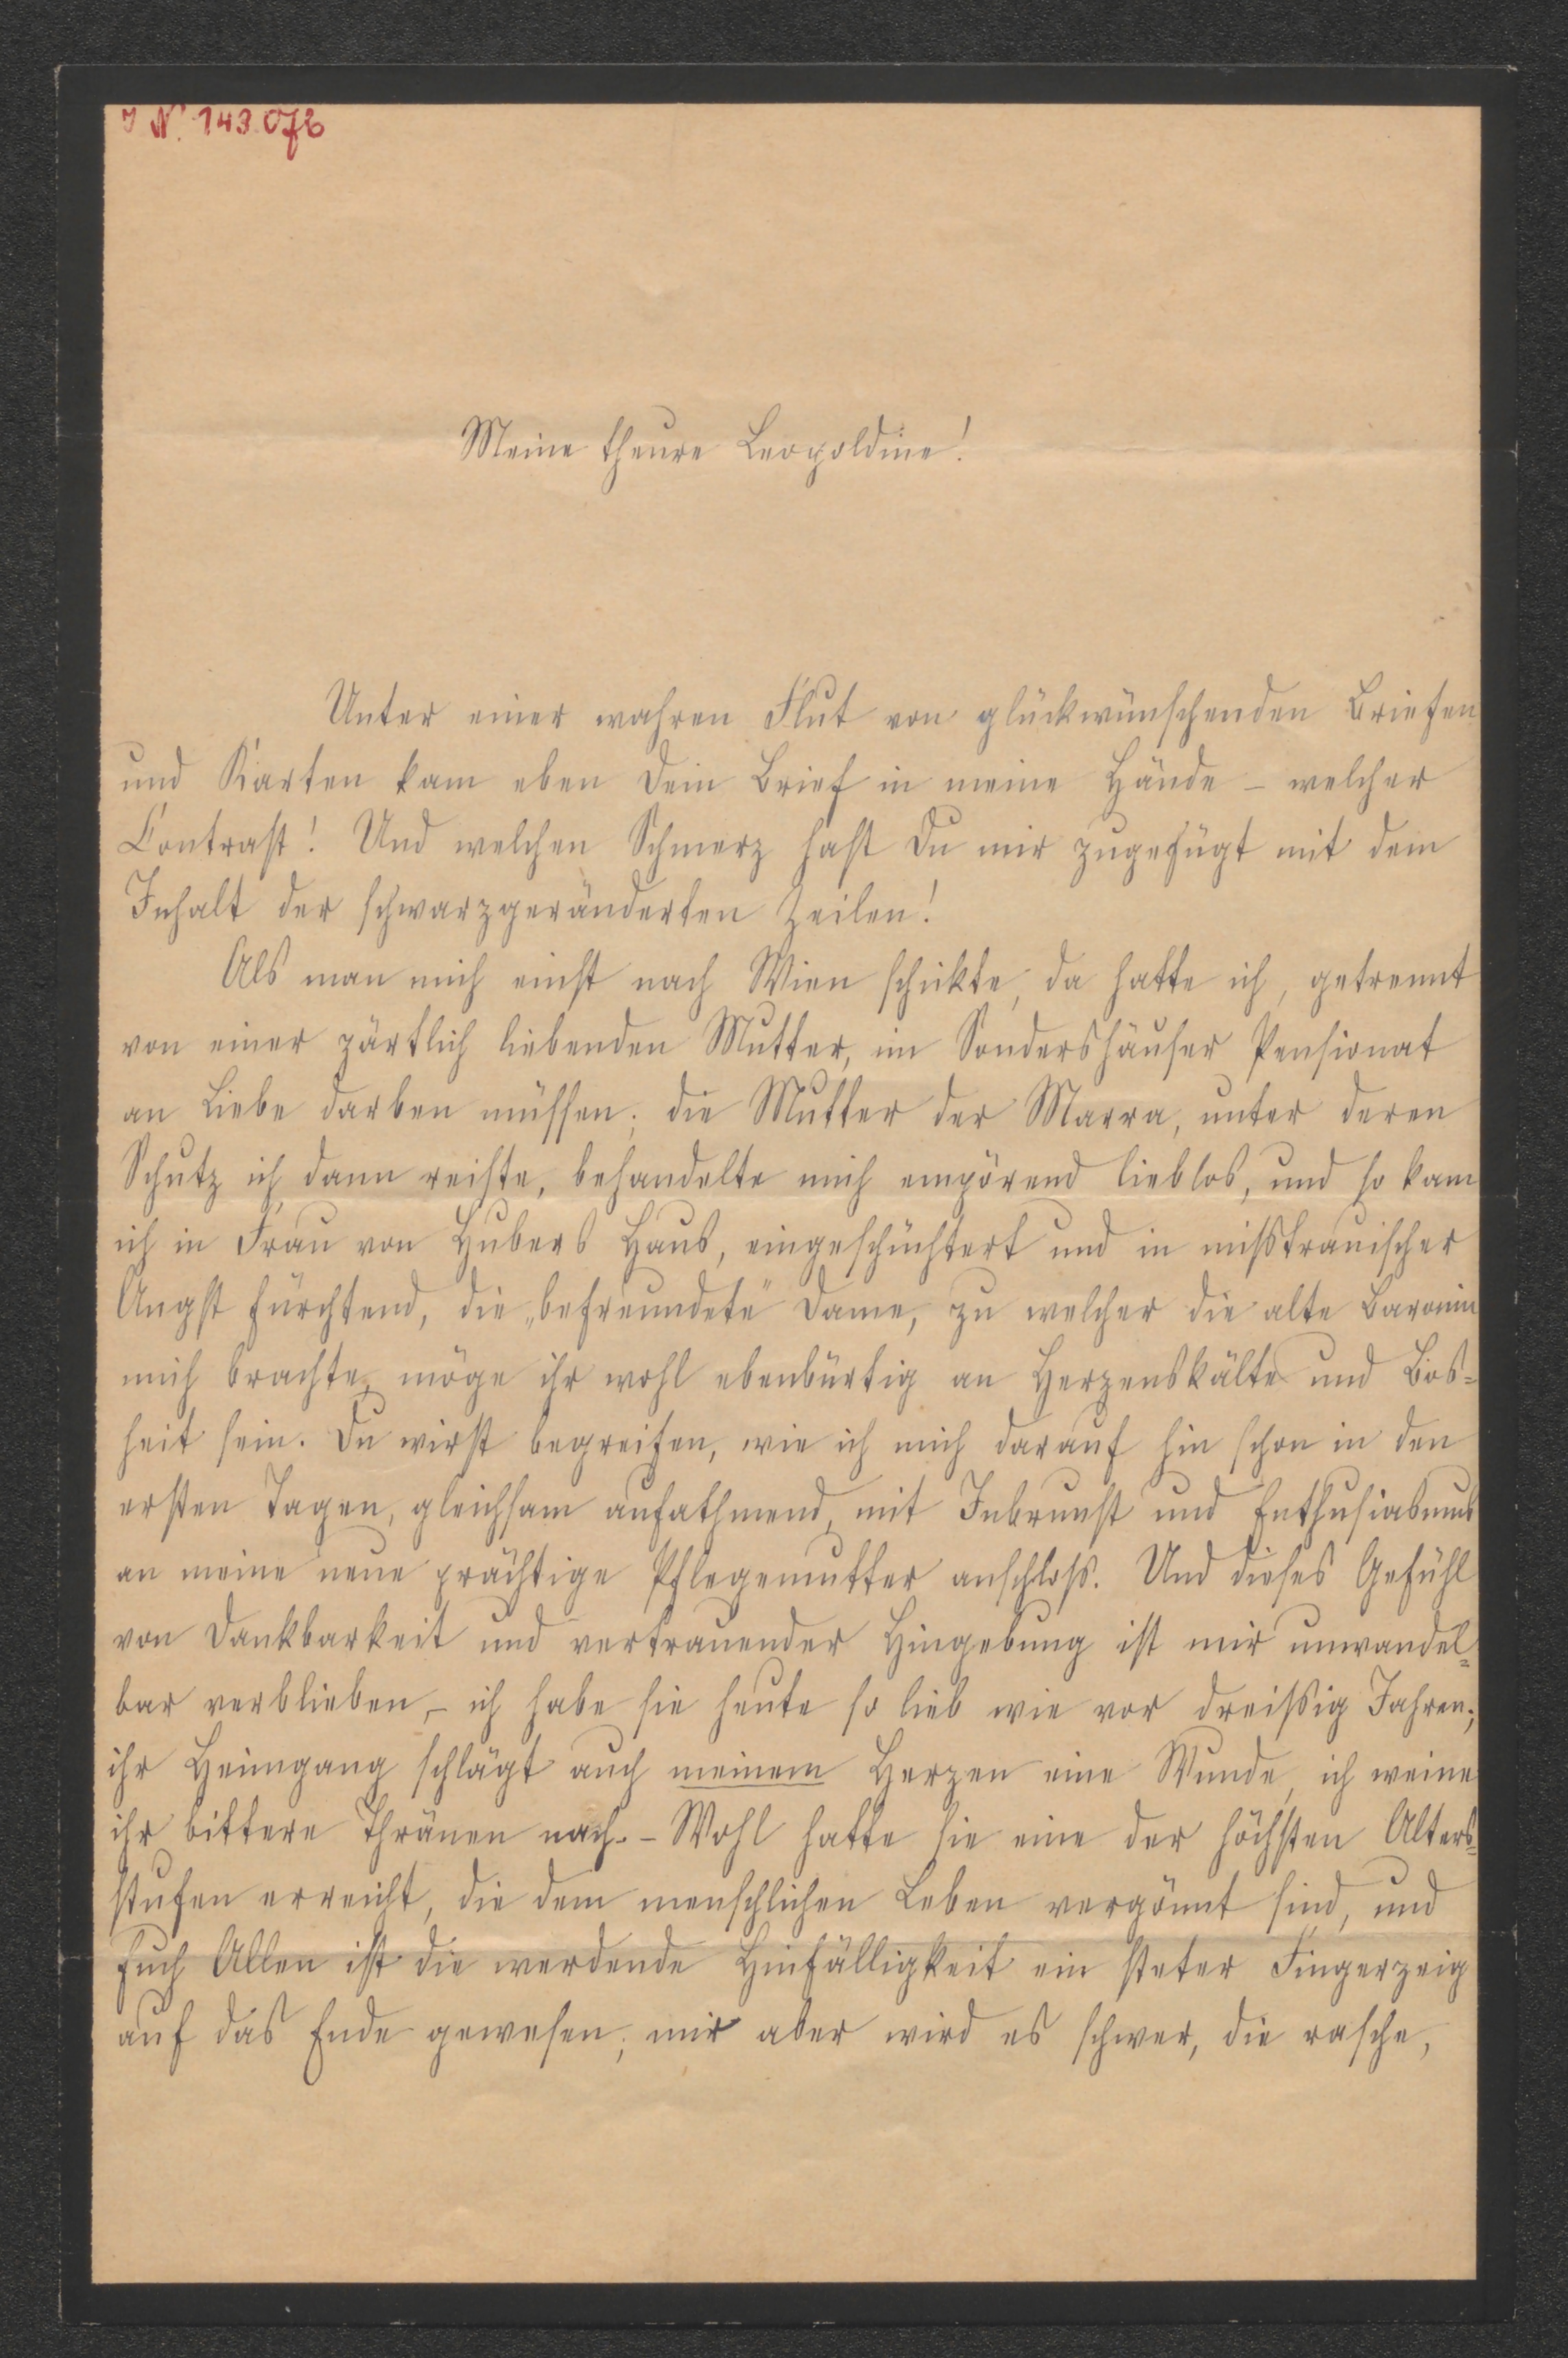 I N. 143.076
Meine theure Leopoldine!
Unter einer wahren Flut von glückwünschenden Briefen
und Karten kam eben Dein Brief in meine Hände – welcher
Contrast! Und welchen Schmerz hast Du mir zugefügt mit dem
Inhalt der schwarzgeränderten Zeilen!
Als man mich einst nach Wien schickte, da hatte ich, getrennt
von einer zärtlich liebenden Mutter, im Sondershäuser Pensionat
an Liebe darben müssen; die Mutter der Marra, unter deren
Schutz ich dann reiste, behandelte mich empörend lieblos, und so kam
ich in Frau von Hubers Haus, eingeschüchtert und in misstrauischer
Angst fürchtend, die „befreundete" Dame, zu welcher die alte Baronin
mich brachte, möge ihr wohl ebenbürtig an Herzenskälte und Bos=
heit sein. Du wirst begreifen, wie ich mich darauf hin schon in den
ersten Tagen, gleichsam aufathmend, mit Inbrunst und Enthusiasmus
an meine neue prächtige Pflegemutter anschloss. Und dieses Gefühl
von Dankbarkeit und vertrauender Hingebung ist mir unwandel=
bar verblieben, – ich habe sie heute so lieb wie vor dreissig Jahren;
ihr Heimgang schlägt auch meinem Herzen eine Wunde, ich weine
ihr bittere Thränen nach. – Wohl hatte sie eine der höchsten Alters=
stufen erreicht, die dem menschlichen Leben vergönnt sind, und
Euch Allen ist die werdende Hinfälligkeit ein steter Fingerzeig
auf das Ende gewesen; mir aber wird es schwer, die rasche,